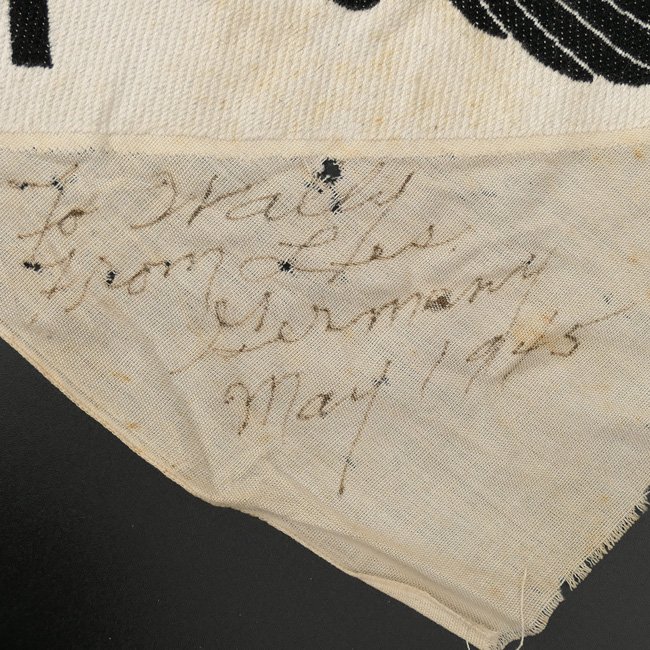 To Wally
From Les.
Germany
May 1945